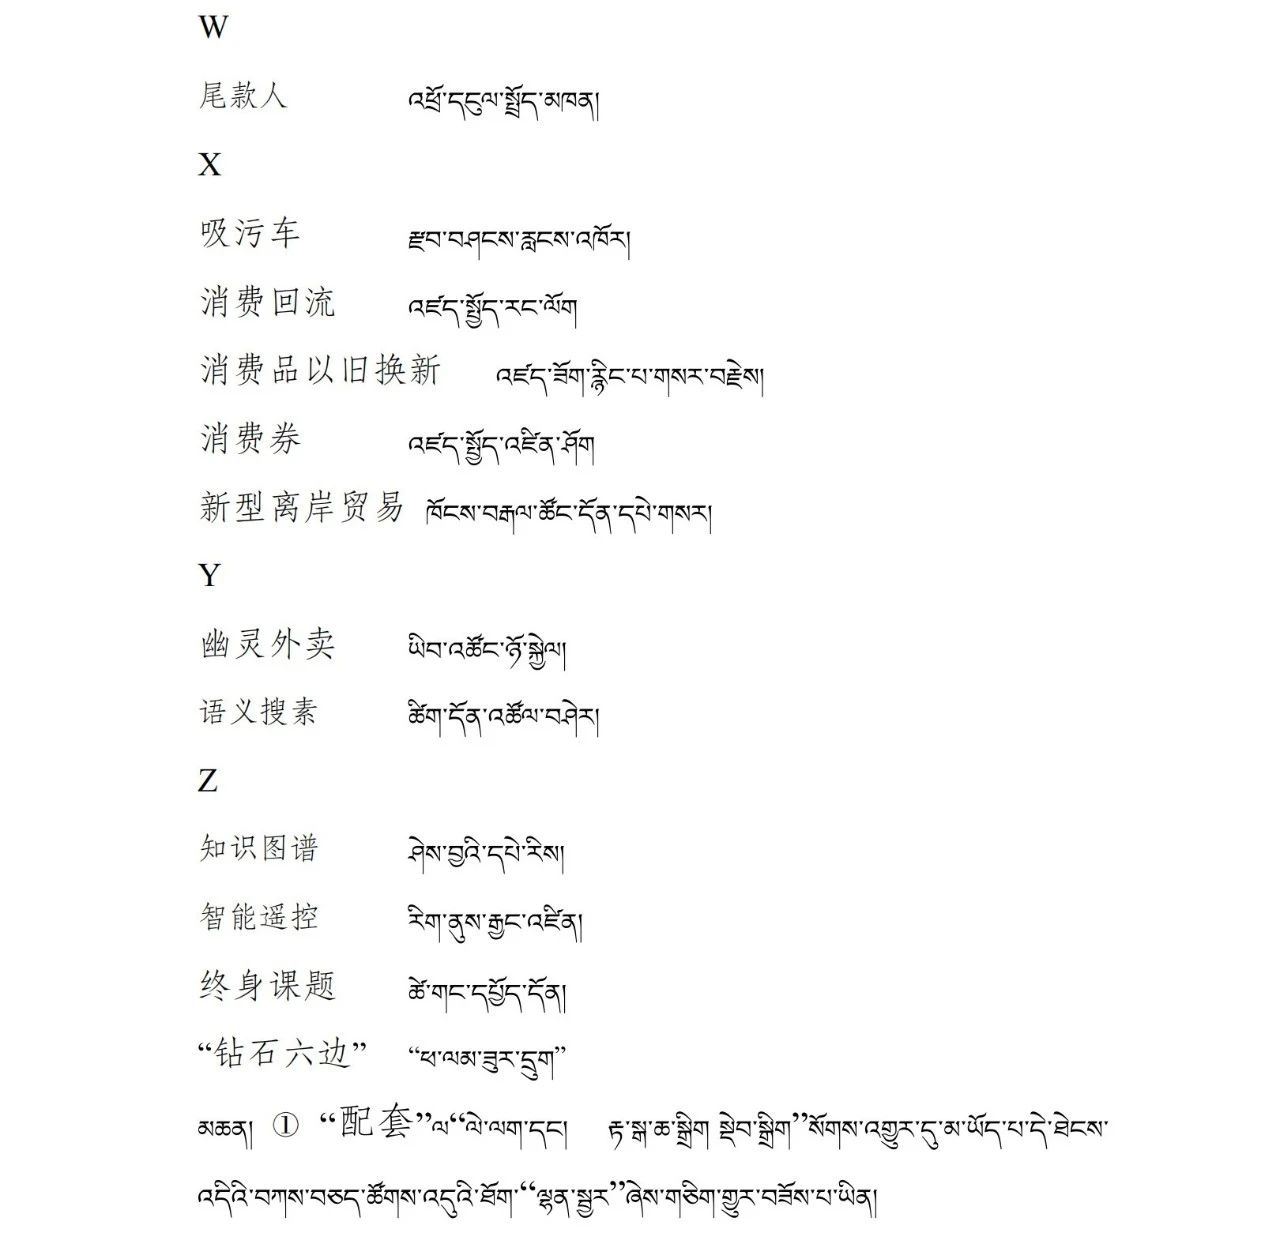 W
尾款人 འཕྲོ་དངུལ་སྤྲོད་མཁན།
X
吸污车 རྫབ་བཤངས་རླངས་འཁོར།
消费回流 འཛད་སྤྱོད་རང་ལོག
消费品以旧换新 འཛད་ཟོག་རྙིང་པ་གསར་བརྗེས།
消费券 འཛད་སྤྱོད་འཛིན་ཤོག
新型离岸贸易 ཁོངས་བརྒལ་ཚོང་དོན་དཔེ་གསར།
Y
幽灵外卖 ཡིབ་འཚོང་ཉོ་སྐྱེལ།
语义搜素 ཚིག་དོན་འཚོལ་བཤེར།
Z
知识图谱 ཤེས་བྱའི་དཔེ་རིས།
智能遥控 རིག་ནུས་རྒྱང་འཛིན།
终身课题 ཚེ་གང་དཔྱོད་དོན།
“钻石六边” “ཕ་ལམ་ཟུར་དྲུག”
མཆན། ① “配套”ལ“ལེ་ལག་དང། རྟ་སྒ་ཆ་སྒྲིག སྡེབ་སྒྲིག”སོགས་འགྱུར་དུ་མ་ཡོད་པ་དེ་ཐེངས་
འདིའི་བཀས་བཅད་ཚོགས་འདུའི་ཐོག་“ལྷན་སྦྱར”ཞེས་གཅིག་གྱུར་བཟོས་པ་ཡིན།